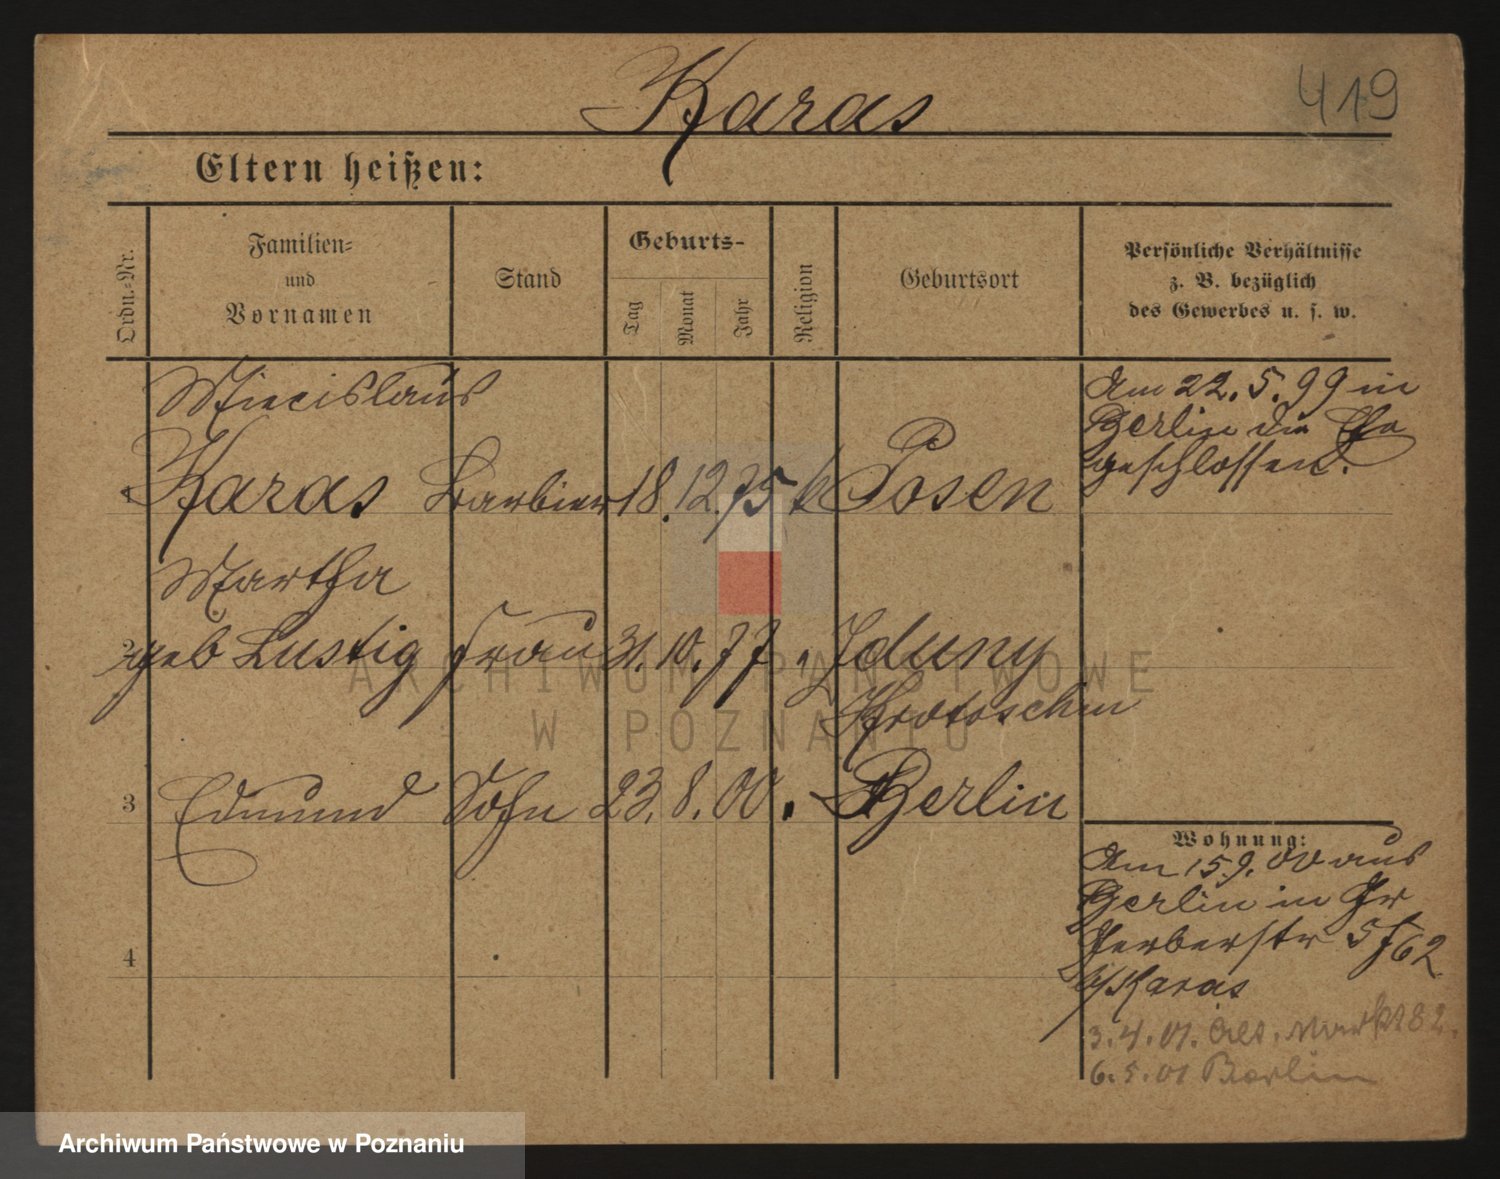 Karas
419
Eltern heißen:
Ordn.-Nr.
Familien-
und
Vornamen
Stand
Geburts-
Tag
Monat
Jahr
Religion
Geburtsort
Persönliche Verhältnisse
z. B. bezüglich
des Gewerbes u. s. w.
Miecislaus
1 Karas Barbier 18. 12. 75 k Posen
Am 22. 5. 99 in
Berlin die Ehe
geschlossen.
Martha
2 geb Lustig Frau 31. 10. 77 " Zduny
Krotoschin
3 Edmund Sohn 23. 8. 00. Berlin
4
Wohnung:
Am 15 9. 00 aus
Berlin in
Gerberstr 57/62
b/Karas
3. 4. 01. Alt. Markt 82.
6. 5. 01 Berlin
ARCHIWUM PAŃSTWOWE
W POZNANIU
Archiwum Państwowe w Poznaniu